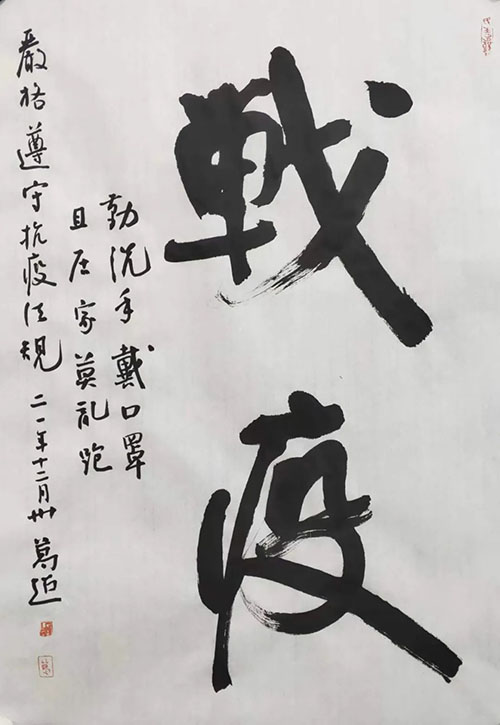 戰疫
勤洗手戴口罩
且在家莫乱跑
嚴格遵守抗疫法規 二一年十二月卅